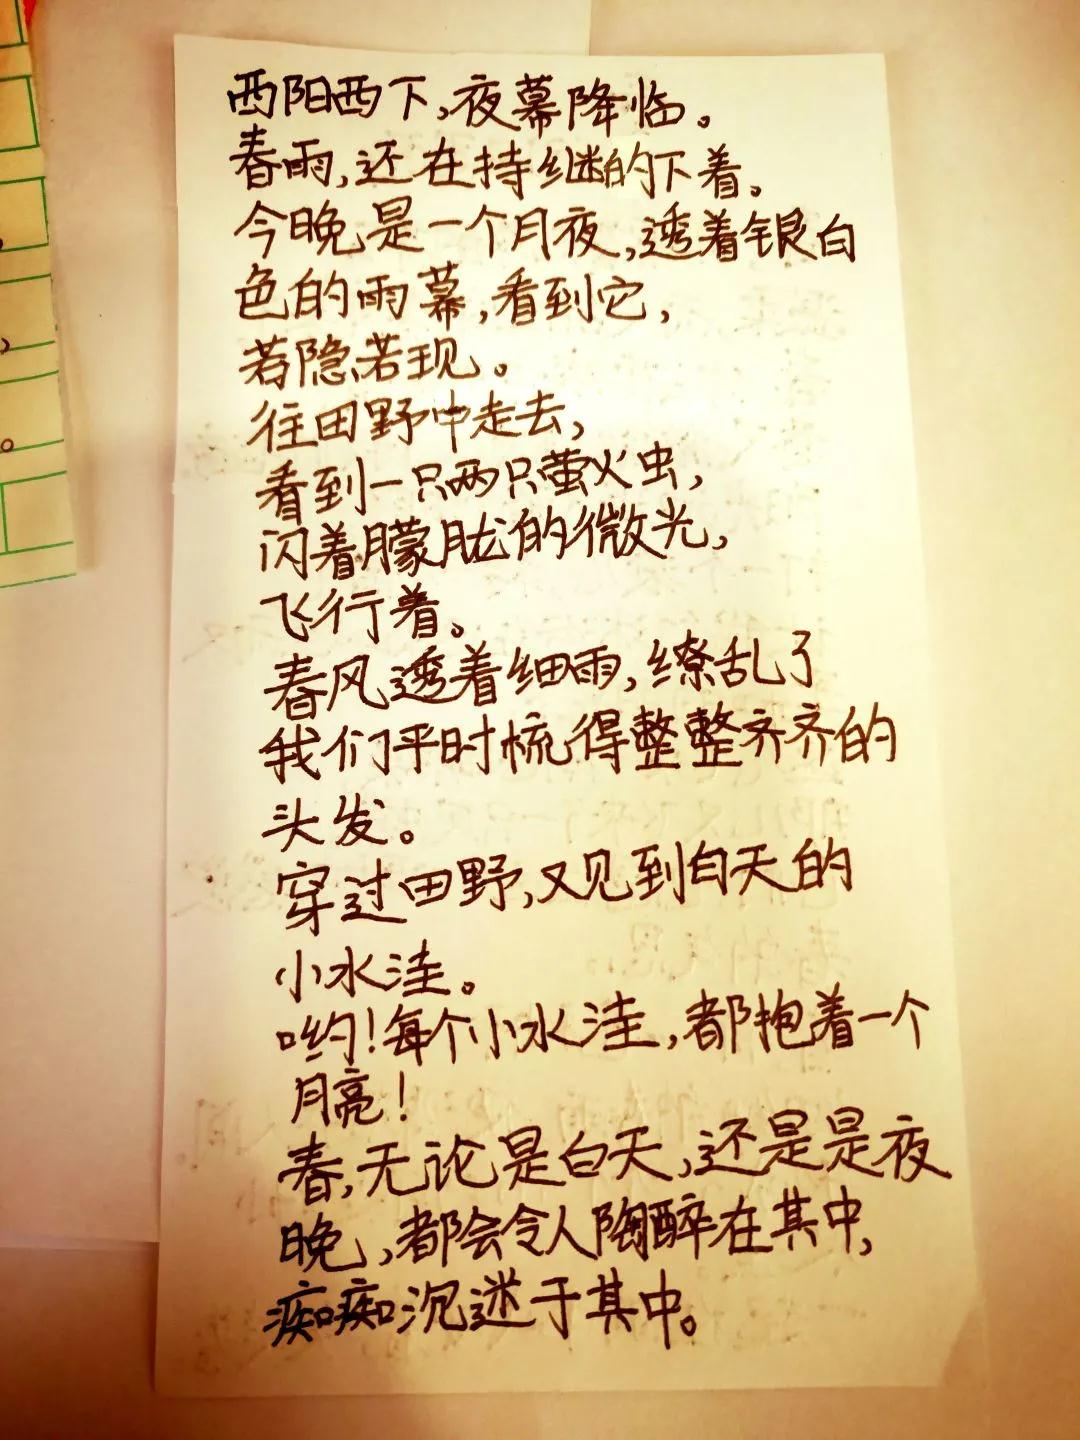 西阳西下,夜幕降临。
春雨,还在持继的下着。
今晚是一个月夜,透着银白
色的雨幕,看到它,
若隐若现。
往田野中走去,
看到一只两只萤火虫,
闪着朦胧的微光,
飞行着。
春风透着细雨,缭乱了
我们平时梳得整整齐齐的
头发。
穿过田野,又见到白天的
小水洼。
哟!每个小水洼,都抱着一个
月亮!
春,无论是白天,还是是夜
晚,都会令人陶醉在其中,
痴痴沉迷于其中。